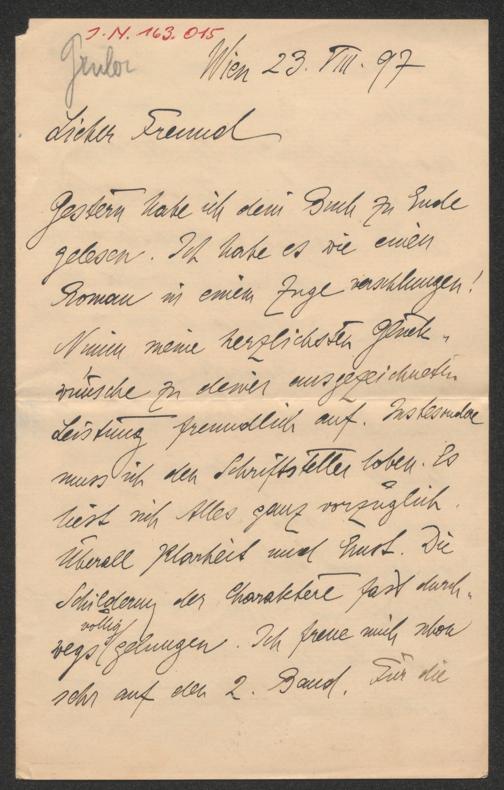 J.N. 163.015
Wien 23. VIII. 97
Lieber Freund
Gestern habe ich dein Buch zu Ende
gelesen. Ich habe es wie einen
Roman in einem Zuge verschlungen!
Nimm meine herzlichsten Glück-
wünsche zu deiner ausgezeichneten
Leistung freundlich auf. Insbesondere
muss ich den Schriftsteller loben. Es
liest sich Alles ganz vorzüglich.
Überall Klarheit und Ernst. Die
Schilderung der Charaktere fast durch-
wegs völlig gelungen. Ich freue mich schon
sehr auf den 2. Band. Für die